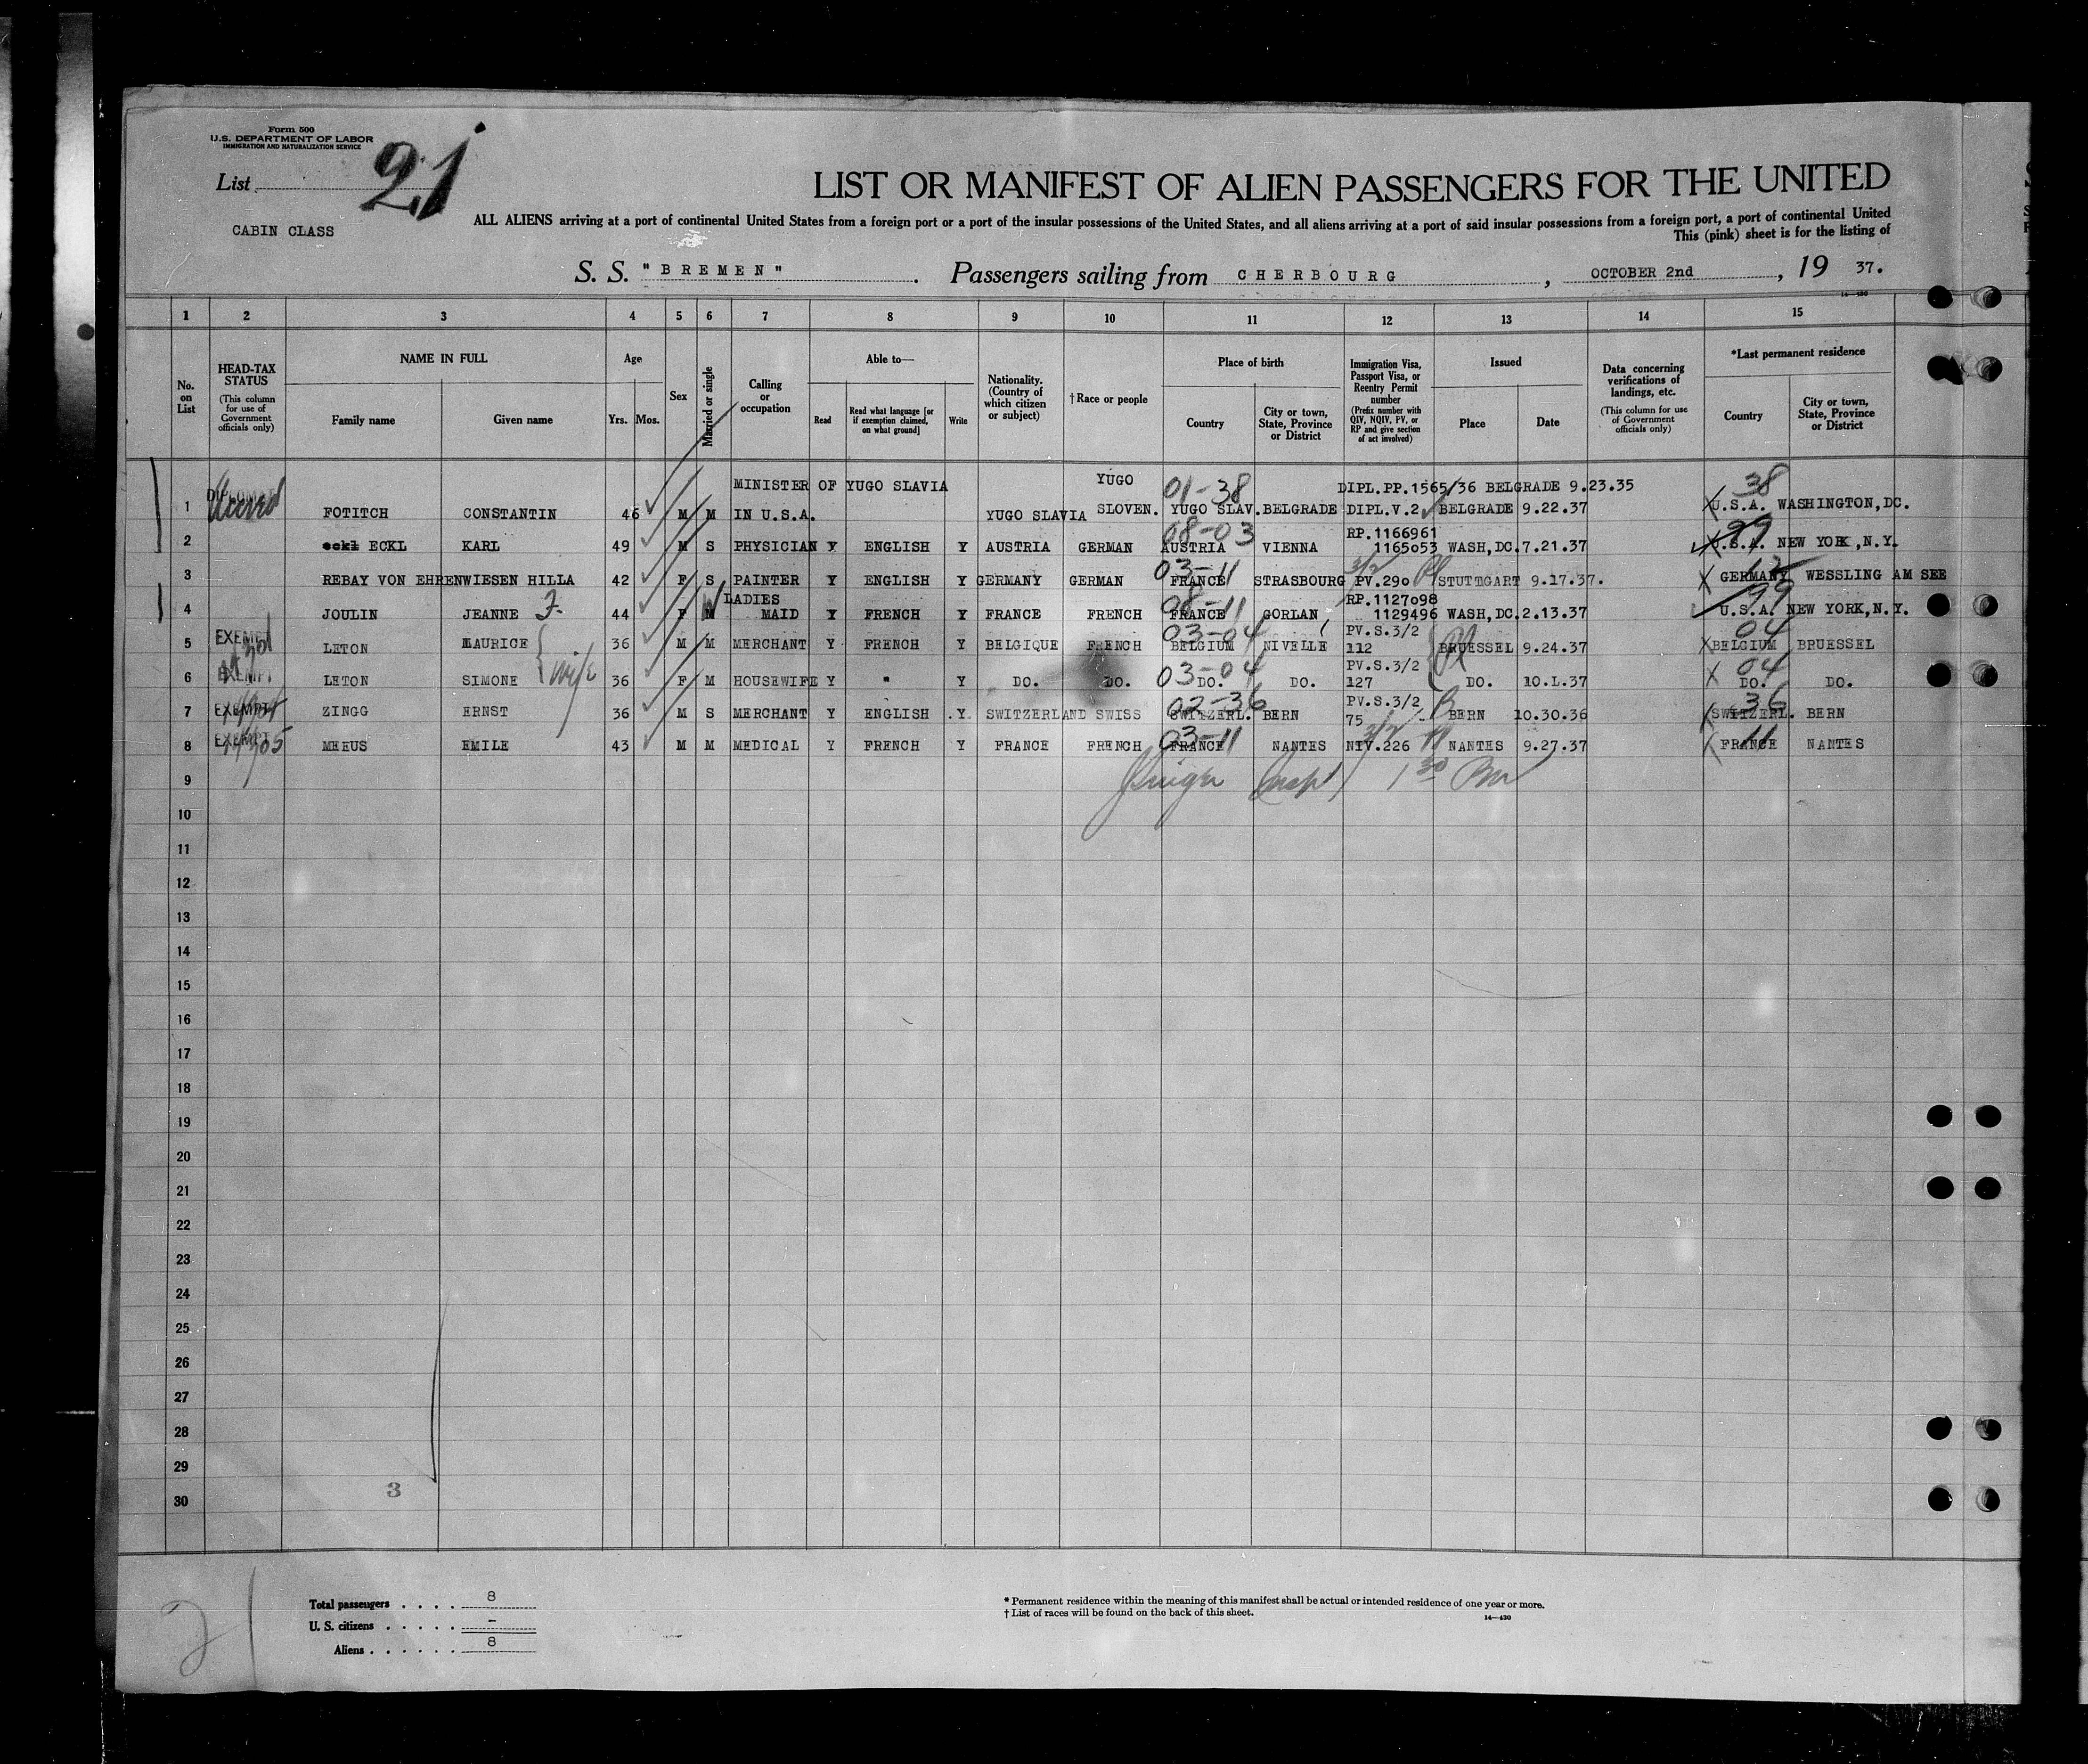 Form 500
U.S. DEPARTMENT OF LABOR
IMMIGRATION AND NATURALIZATION SERVICE
List 21
CABIN CLASS
LIST OR MANIFEST OF ALIEN PASSENGERS FOR THE UNITED
ALL ALIENS arriving at a port of continental United States from a foreign port or a port of the insular possessions of the United States, and all aliens arriving at a port of said insular possessions from a foreign port, a port of continental United
This (pink) sheet is for the listing of
S. S. "BREMEN". Passengers sailing from CHERBOURG, OCTOBER 2nd, 19 37.
14—430
1 2 3 4 5 6 7 8 9 10 11 12 13 14 15
No. on List
HEAD-TAX STATUS (This column for use of Government officials only)
NAME IN FULL
Family name Given name
Age
Yrs. Mos.
Sex
Married or single
Calling or occupation
Able to—
Read
Read what language [or if exemption claimed, on what ground]
Write
Nationality. (Country of which citizen or subject)
†Race or people
Place of birth
Country
City or town, State, Province or District
Immigration Visa, Passport Visa, or Reentry Permit number (Prefix number with QIV, NQIV, PV, or RP and give section of act involved)
Issued
Place Date
Data concerning verifications of landings, etc. (This column for use of Government officials only)
*Last permanent residence
Country
City or town, State, Province or District
MINISTER OF YUGO SLAVIA YUGO 01-38 DIPL.PP.1565/36 BELGRADE 9.23.35 38
1 FOTITCH CONSTANTIN 46 M M IN U.S.A. YUGO SLAVIA SLOVEN. YUGO SLAV. BELGRADE DIPL.V.2 BELGRADE 9.22.37 X U.S.A. WASHINGTON,DC.
08-03 RP.1166961 99
2 eckl ECKL KARL 49 M S PHYSICIAN Y ENGLISH Y AUSTRIA GERMAN AUSTRIA VIENNA 1165053 WASH,DC. 7.21.37 U.S.A. NEW YORK,N.Y.
03-11 3/2 12
3 REBAY VON EHRENWIESEN HILLA 42 F S PAINTER Y ENGLISH Y GERMANY GERMAN FRANCE STRASBOURG PV.290 STUTTGART 9.17.37. X GERMANY WESSLING AM SEE
W LADIES 08-11 RP.1127098 99
4 JOULIN JEANNE F. 44 F M MAID Y FRENCH Y FRANCE FRENCH FRANCE GORLAN 1129496 WASH,DC. 2.13.37 U.S.A. NEW YORK,N.Y.
EXEMPT 03-04 PV.S.3/2 04
5 LETON MAURICE 36 M M MERCHANT Y FRENCH Y BELGIQUE FRENCH BELGIUM NIVELLE 112 BRUESSEL 9.24.37 X BELGIUM BRUESSEL
EXEMPT wife 03-04 PV.S.3/2 04
6 LETON SIMONE 36 F M HOUSEWIFE Y " Y DO. DO. DO. DO. 127 DO. 10.1.37 X DO. DO.
EXEMPT 02-36 PV.S.3/2 36
7 ZINGG ERNST 36 M S MERCHANT Y ENGLISH Y SWITZERLAND SWISS SWITZERL. BERN 75 BERN 10.30.36 SWITZERL. BERN
EXEMPT 03-11 3/2 11
8 MEEUS EMILE 43 M M MEDICAL Y FRENCH Y FRANCE FRENCH FRANCE NANTES NIV.226 NANTES 9.27.37 FRANCE NANTES
9 Insp 1 30 PM
10
11
12
13
14
15
16
17
18
19
20
21
22
23
24
25
26
27
28
29
3
30
21
Total passengers . . . . 8
U. S. citizens . . . . . –
Aliens . . . . . . 8
* Permanent residence within the meaning of this manifest shall be actual or intended residence of one year or more.
† List of races will be found on the back of this sheet.
14—430